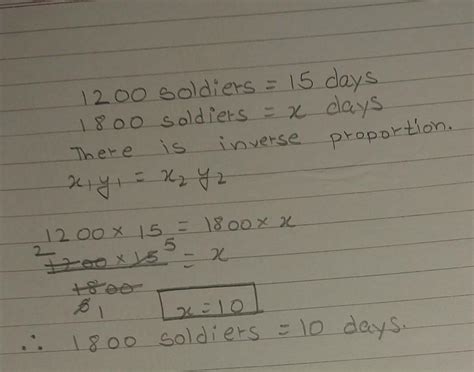 1200 soldiers = 15 days
1800 soldiers = x days
There is inverse proportion.
x₁y₁ = x₂ y₂
1200 × 15 = 1800 × x
2 5
1200 × 15 = x
1800
3 1
x = 10
∴ 1800 soldiers = 10 days.